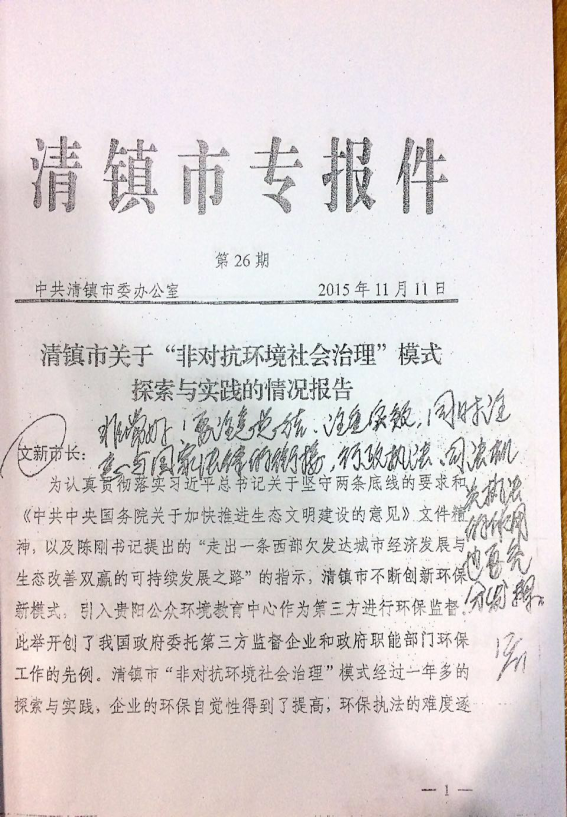 清镇市专报件
第26期
中共清镇市委办公室 2015年11月11日
清镇市关于“非对抗环境社会治理”模式
探索与实践的情况报告
非常好！要注意总结、注重实效，同时注
意与国家法律的衔接，行政执法、司法机
关执法
的作用
也要充
分发挥。
文新市长：
为认真贯彻落实习近平总书记关于坚守两条底线的要求和
《中共中央国务院关于加快推进生态文明建设的意见》文件精
神，以及陈刚书记提出的“走出一条西部欠发达城市经济发展与
生态改善双赢的可持续发展之路”的指示，清镇市不断创新环保
新模式，引入贵阳公众环境教育中心作为第三方进行环保监督。
此举开创了我国政府委托第三方监督企业和政府职能部门环保
工作的先例。清镇市“非对抗环境社会治理”模式经过一年多的
探索与实践，企业的环保自觉性得到了提高，环保执法的难度逐
— 1 —